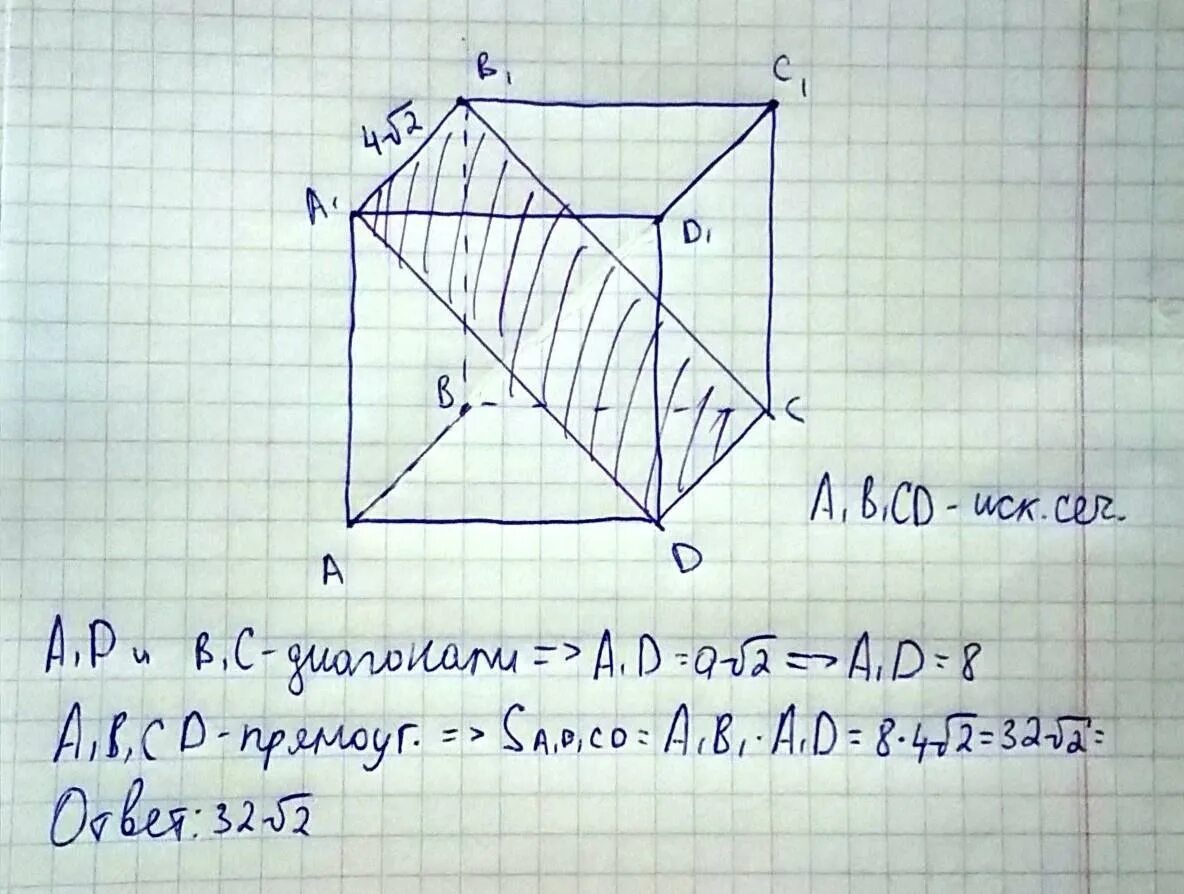 B₁
C₁
4√2
A₁
D₁
B
C
A₁B₁CD - иск. сеч.
A
D
A₁D и B₁C - диагонали => A₁D = a√2 => A₁D = 8
A₁B₁CD - прямоуг. => S A₁B₁CD = A₁B₁ · A₁D = 8 · 4√2 = 32√2 =
Ответ: 32√2